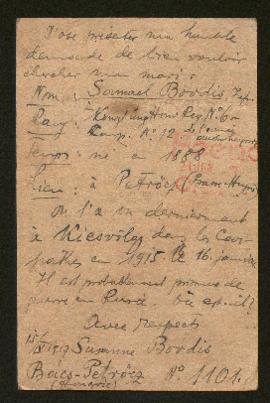 J'ose présenter mon humble
demande de bien vouloir
chercher mon mari :
Nom : Samuel Bovdis
Rang :
Comp. No 12
Temps : né à 1888
Lieu : à Petröcz
On l'a vu dernièrement
à Kiesvölgy dans les Car-
pathes en 1915 le 16 janvier
Il est probablement prisonnier de
guerre en Où est-il?
Avec respects
Susanne Bovdis
Bacs-Petröcz
(Hongrie) No 1101.